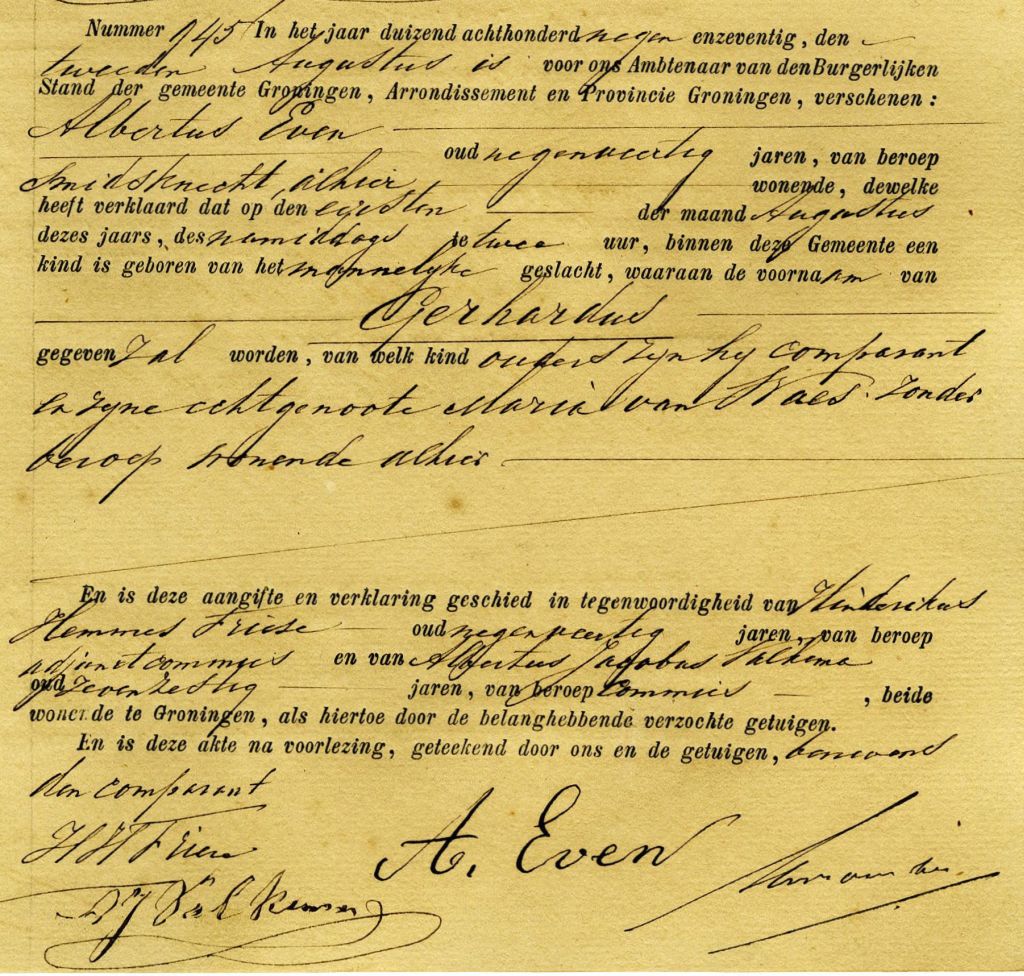 Nummer 945 In het jaar duizend achthonderd negen enzeventig, den
tweeden Augustus is voor ons Ambtenaar van den Burgerlijken
Stand der gemeente Groningen, Arrondissement en Provincie Groningen, verschenen:
Albertus Even
oud negenveertig jaren, van beroep
smidsknecht, alhier wonende, dewelke
heeft verklaard dat op den eersten der maand Augustus
dezes jaars, des namiddags te twee uur, binnen deze Gemeente een
kind is geboren van het mannelyke geslacht, waaraan de voornaam van
Gerhardus
gegeven zal worden, van welk kind ouders zyn hy comparant
en zyne echtgenoote Maria van Waes zonder
beroep wonende alhier
En is deze aangifte en verklaring geschied in tegenwoordigheid van Hinderikus
Hemmes Friese oud negenveertig jaren, van beroep
adjunct commies en van Albertus Jacobus Valkema
oud zevenzestig jaren, van beroep Commies, beide
wonende te Groningen, als hiertoe door de belanghebbende verzochte getuigen.
En is deze akte na voorlezing, geteekend door ons en de getuigen, benevens
den comparant
HH Friese
A. Even
AJ Valkema